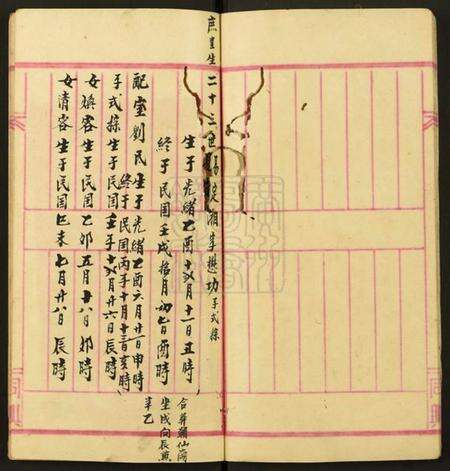 庶呈生二十三世 湘字懋功子式操
生于光緒乙酉十一月十一日丑時
終于民國壬戌拾月初七日酉時
配室劉氏生于光緒乙酉六月廿一日申時
終于民国丙子十月十三日亥時
子式操生于民国壬子十二月廿六日辰時
女煥容生于民国乙卯五月廿八日卯時
女清容生于民国己未七月廿八日辰時
合葬
坐戌向辰兼
辛乙